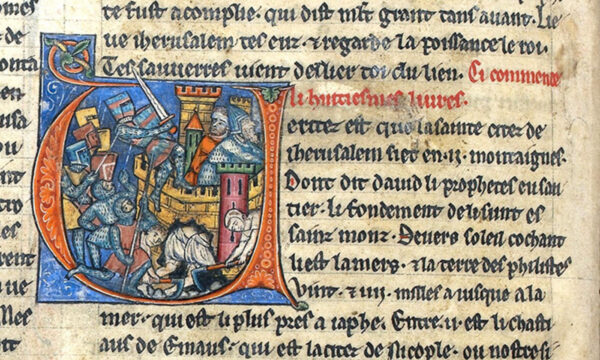 te fust acomplie. qui dist mlt grant tans auant. Lie
ue iherusalem tes euz. & regarde la poissance le roi.
Tes sauuerres uient deslier toi du lien. Ci commence
li huitiesmes liures.
eritez est que la sainte citez de
iherusalem siet en .ii. montaignes.
Dont dit dauid li prophetes en sau
tier. li fondement de li sunt es
sainz monz. Deuers soleil cochant
li est la mers. & la terre des philistes
uint. & iiii. milles a iusque a la
mer. qui est li plus pres a iaphe. Entre .ii. est li chasti
aus de Emaus. qui est la citez de Nicople. ou nostresi